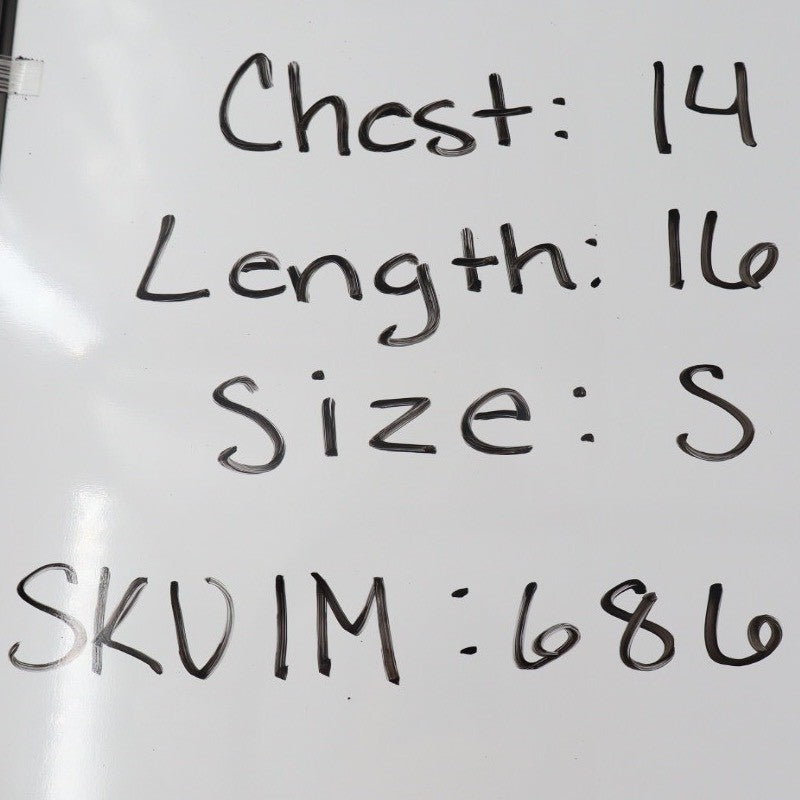 Chest: 14
Length: 16
Size: S
SKUIM: 686